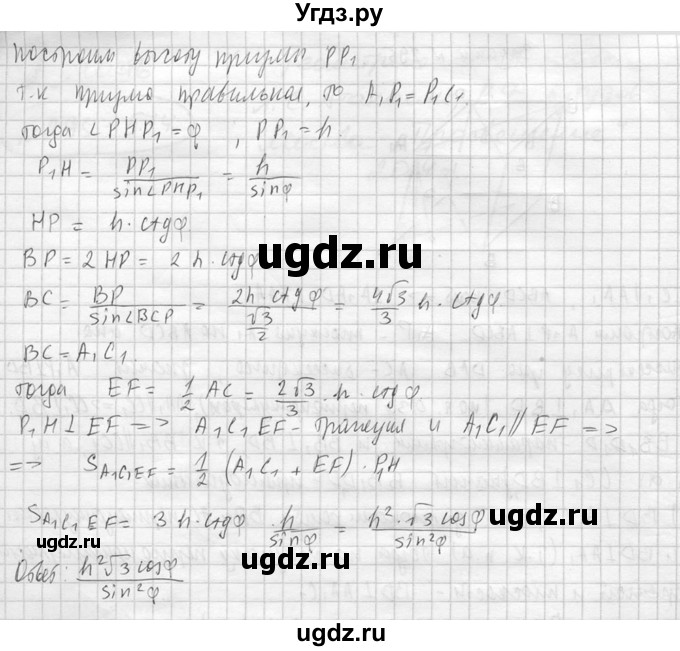 Угдз.ру
построим высоту призмы PP₁
т.к призма правильная, то A₁P₁=P₁C₁.
тогда ∠PHP₁=φ , PP₁=h.
P₁H = PP₁/sin∠PHP₁ = h/sinφ
HP = h·ctgφ
BP=2HP= 2h·ctgφ
BC= BP/sin∠BCP = 2h·ctgφ/(√3/2) = 4√3/3 h·ctgφ
BC=A₁C₁.
тогда EF= 1/2 AC= 2√3/3·h·ctgφ
P₁H⊥EF => A₁C₁EF-трапеция и A₁C₁//EF =>
=> S A₁C₁EF = 1/2 (A₁C₁+EF)·P₁H
S A₁C₁EF= 3h·ctgφ · h/sinφ = h²·√3cosφ/sin²φ
Ответ: h²√3cosφ/sin²φ
ugdz.ru
ugdz.ru
ugdz.ru
ugdz.ru
ugdz.ru
ugdz.ru
ugdz.ru